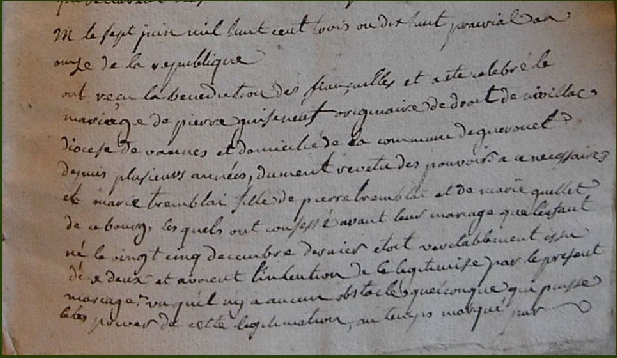 M le sept juin mil huit cent trois ou dix huit prairial an
onze de la republique
ont reçu la benediction des fiançailles et a ete celebré le
mariage de pierre guiheneuf originaire de droit de nivillac
diocese de vannes et domicilié de la commune de guerouet
depuis plusieurs années, dument revetu des pouvoirs a ce necessaires
et marie tremblai fille de pierre tremblai et de marie quellet
de ce bourg, les quels ont confessé avant leur mariage que l'enfant
né le vingt cinq decembre dernier etoit veritablement issu
d'eux deux et avoient l'intention de le legitimise par le present
mariage. vu qu'il n'y a aucun obstacle quelconque qui puisse
les priver de cette legitimation, au temps marqué par